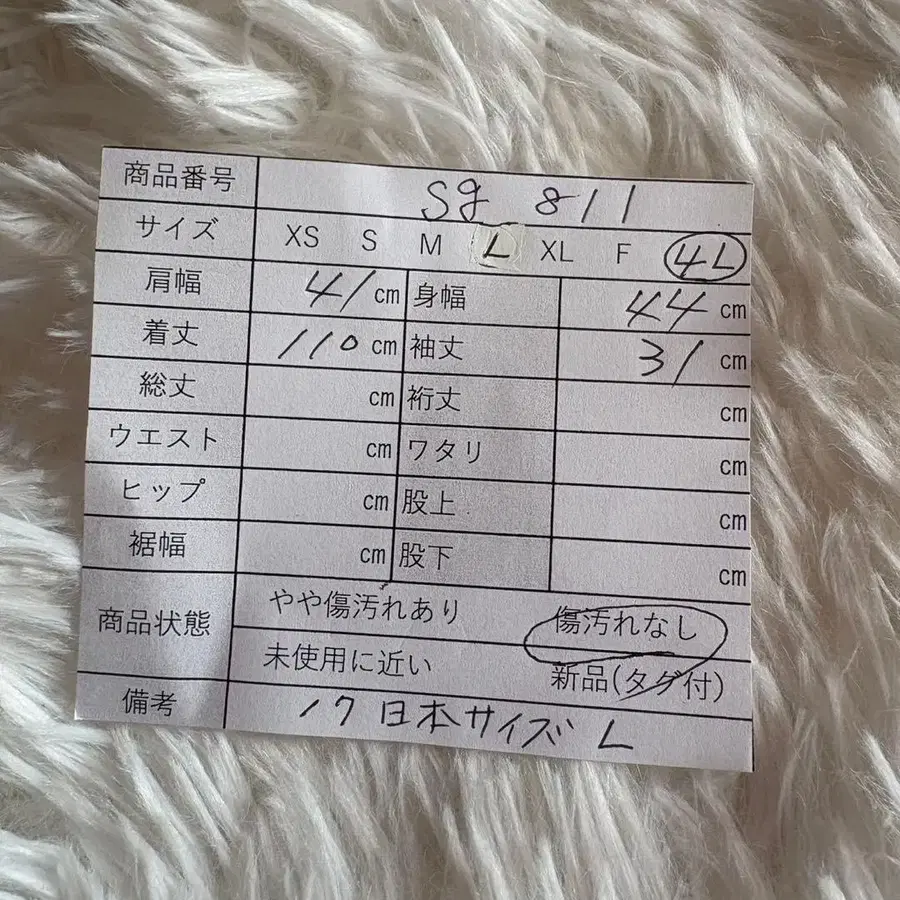 商品番号 sg 811
サイズ XS S M L XL F 4L
肩幅 41 cm 身幅 44 cm
着丈 110 cm 袖丈 31 cm
総丈 cm 裄丈 cm
ウエスト cm ワタリ cm
ヒップ cm 股上 cm
裾幅 cm 股下 cm
商品状態 やや傷汚れあり 傷汚れなし
未使用に近い 新品(タグ付)
備考 17 日本サイズ L